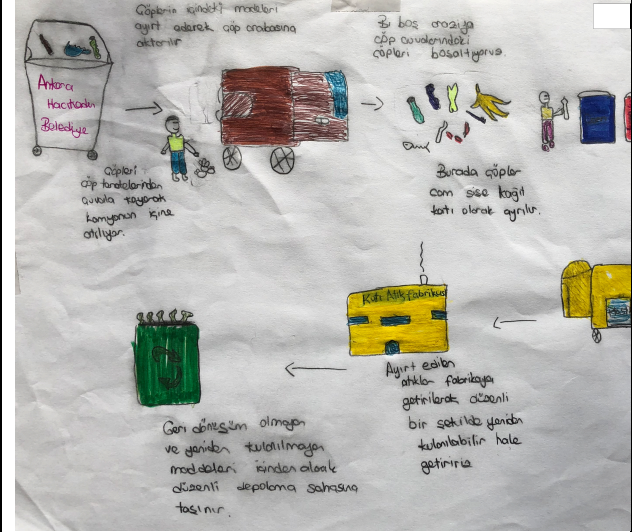 Çöplerin içindeki maddeleri
ayırt ederek çöp arabasına
aktarılır
Bi boş araziya
çöp cuvalarındaki
çöpleri boşaltıyoruz
Ankara
Hacıkadın
Belediye
Çöpleri
çöp tanelerinden
çuvala koyarak
kamyonun içine
atılıyor.
Burada çöpler
cam şişe kağıt
katı olarak ayrılır.
Katı Atık fabrikası
Ayırt edilen
atıklar fabrikaya
getirilerek düzenli
bir şekilde yeniden
kulanılabilir hale
getiririz
Geri dönüşüm olmayan
ve yeniden kulanılmayan
maddeleri içinden alarak
düzenli depolama sahasına
taşınır.